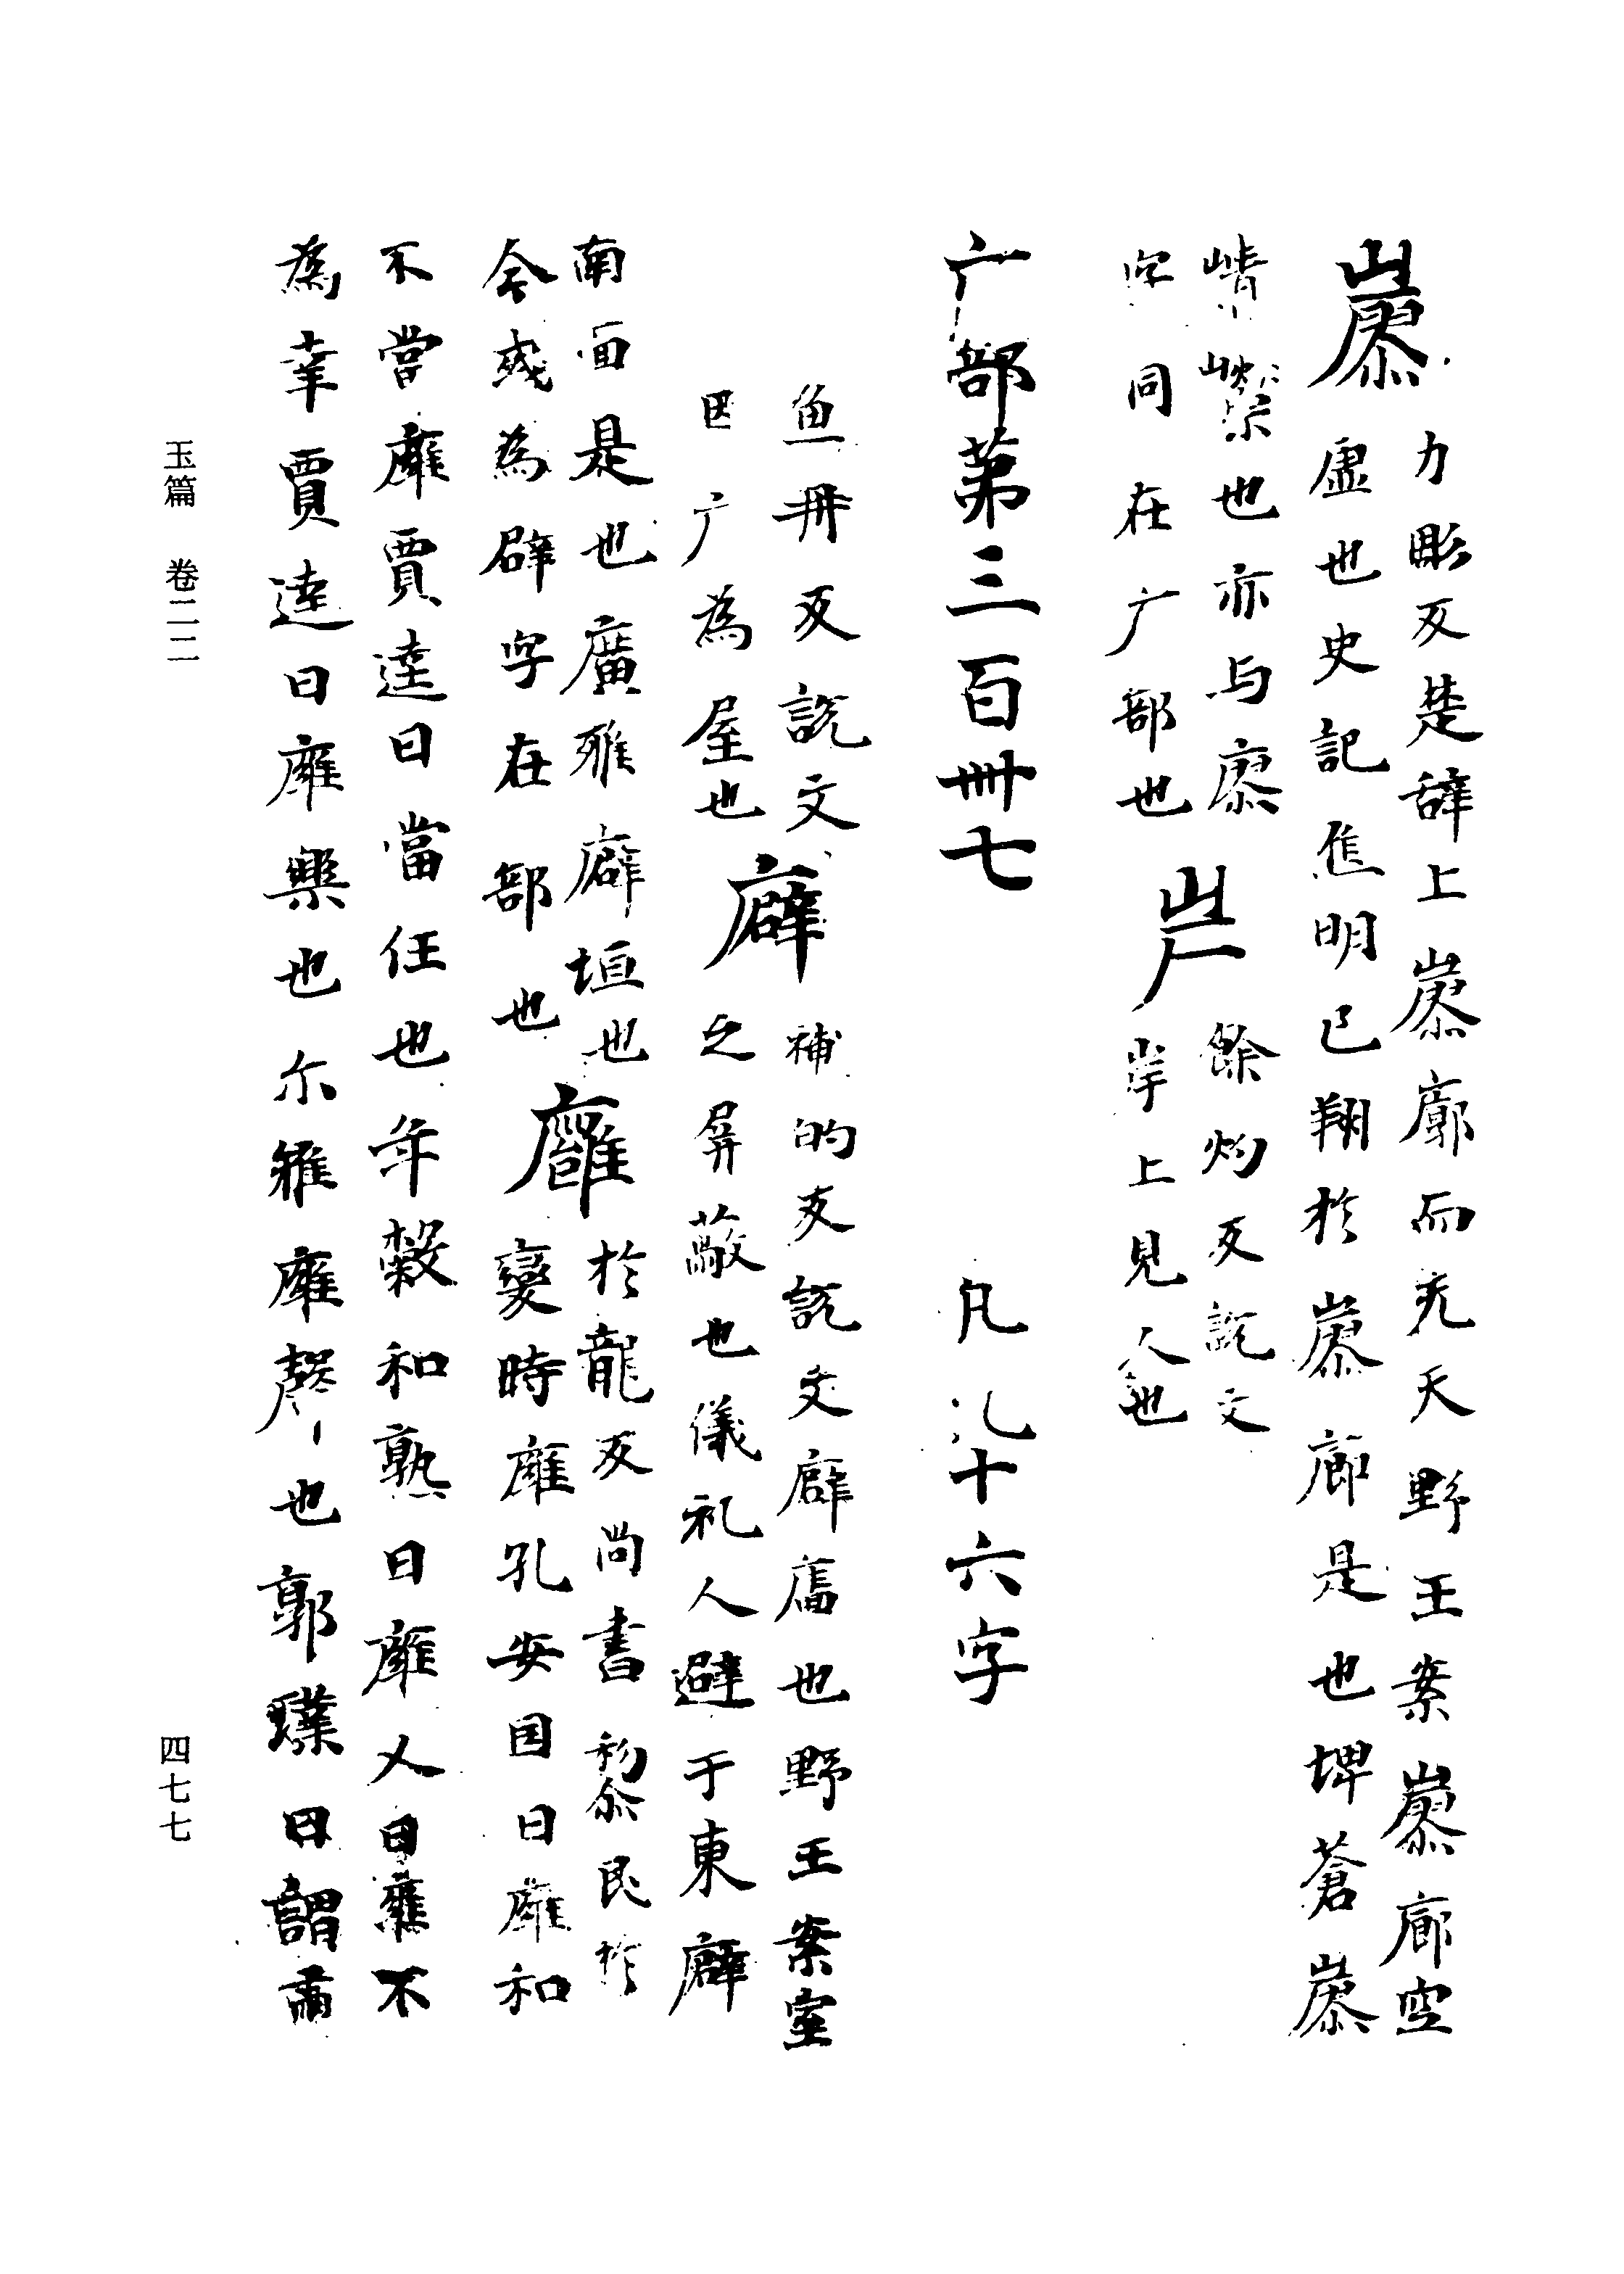 嵺 力彫反楚辞上嵺廓而无天野王案嵺廊空
虛也史記僬明已翔於嵺廊是也埤蒼嵺
也亦与廖
字同在广部也
屵 餘灼反說文
岸上見人也
广部第三百卌七 凡九十六字
魚冊反說文
因广為屋也
廦 補的反說文廦廧也野王案室
之屏蔽也儀礼人避于東廦
南面是也廣雅廦垣也
今或為辟字在部也
廱 於龍反尚書黎民於
變時廱孔安国曰廱和
不當廱賈逵曰當任也年穀和熟曰廱人曰廱不
為幸賈逵曰廱樂也尓雅廱聲也郭璞曰謂肅
玉篇 卷二二
四七七